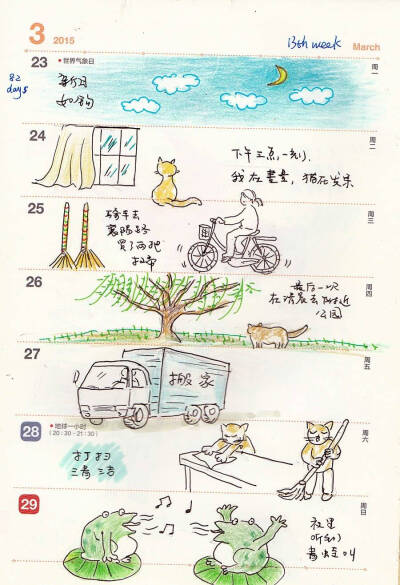 3 2015
13th week
March
23
•世界气象日
周一
82
days
新月
如钩
24
周二
下午三点一刻,
我在画画,猫在发呆
25
周三
骑车去
襄阳路
买了两把
扫帚
26
周四
最后一次
在清晨去附近
公园
27
周五
搬家
28
•地球一小时
(20:30-21:30)
周六
打扫
29
周日
夜里
听到
青蛙叫